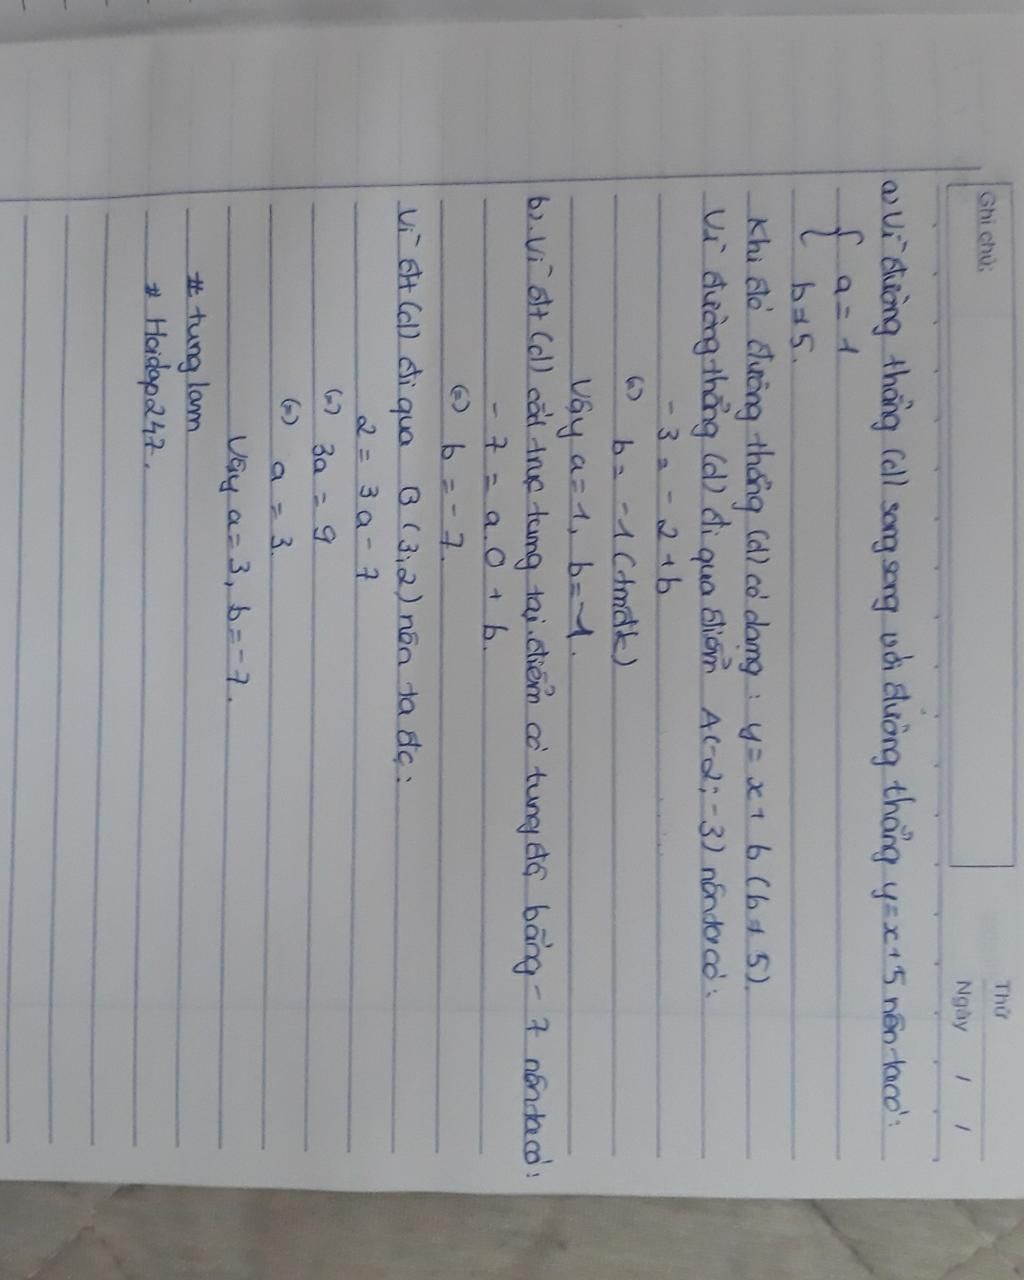 Ghi chú:
Thứ
Ngày / /
a) Vì đường thẳng (d) song song với đường thẳng y=x+5 nên ta có:
{ a = 1
{ b ≠ 5.
Khi đó đường thẳng (d) có dạng : y = x + b (b ≠ 5)
Vì đường thẳng (d) đi qua điểm A(-2; -3) nên ta có:
-3 = -2 + b
(=) b = -1 (tmđk)
Vậy a=1, b=-1.
b). Vì đt (d) cắt trục tung tại điểm có tung độ bằng -7 nên ta có:
-7 = a.0 + b.
(=) b = -7.
Vì đt (d) đi qua B (3;2) nên ta đc:
2 = 3a - 7
(=) 3a = 9
(=) a = 3.
Vậy a=3, b=-7.
# tung lam
# Hoidap247.